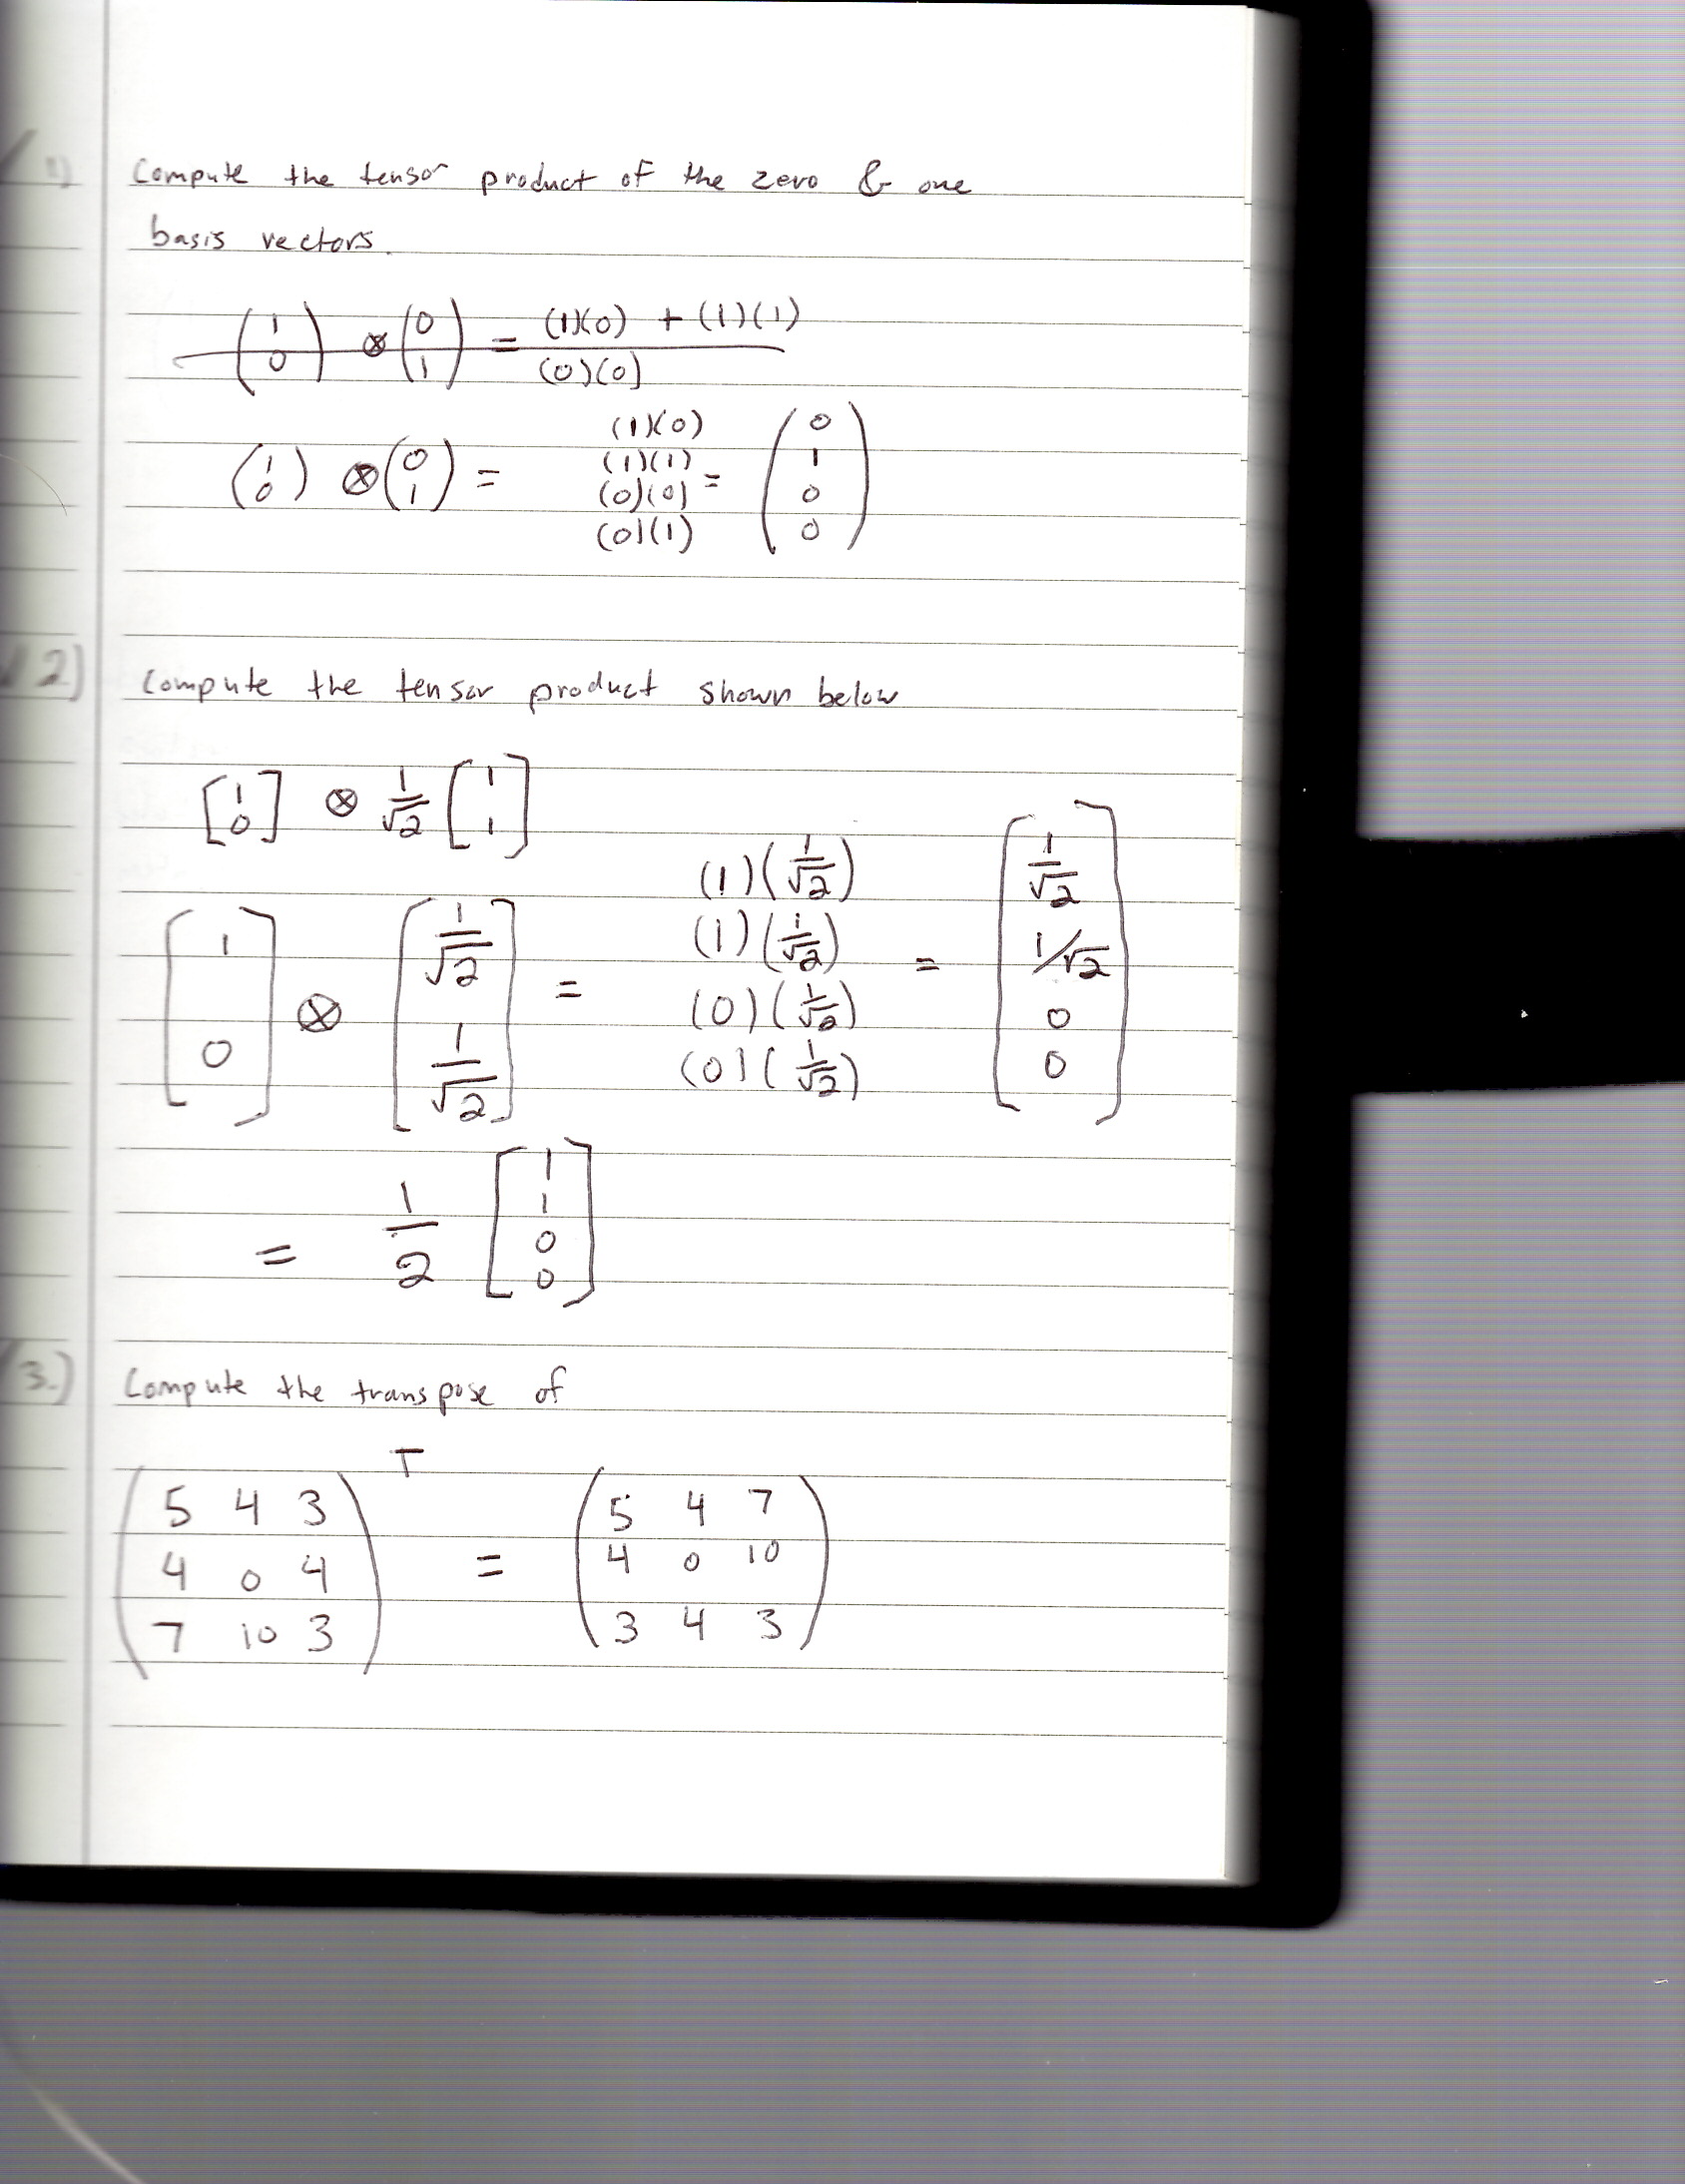 1) Compute the tensor product of the zero & one
basis vectors.
(1 0) ⊗ (0 1) = (1)(0) + (1)(1)
(0)(0)
(1 0) ⊗ (0 1) = (1)(0) (1)(1) (0)(0) (0)(1) = (0 1 0 0)
2) Compute the tensor product shown below
[1 0] ⊗ 1/√2 [1 1]
[1 0] ⊗ [1/√2 1/√2] = (1)(1/√2) (1)(1/√2) (0)(1/√2) (0)(1/√2) = [1/√2 1/√2 0 0]
= 1/2 [1 1 0 0]
3.) Compute the transpose of
(5 4 3 T = (5 4 7
4 0 4 4 0 10
7 10 3) 3 4 3)